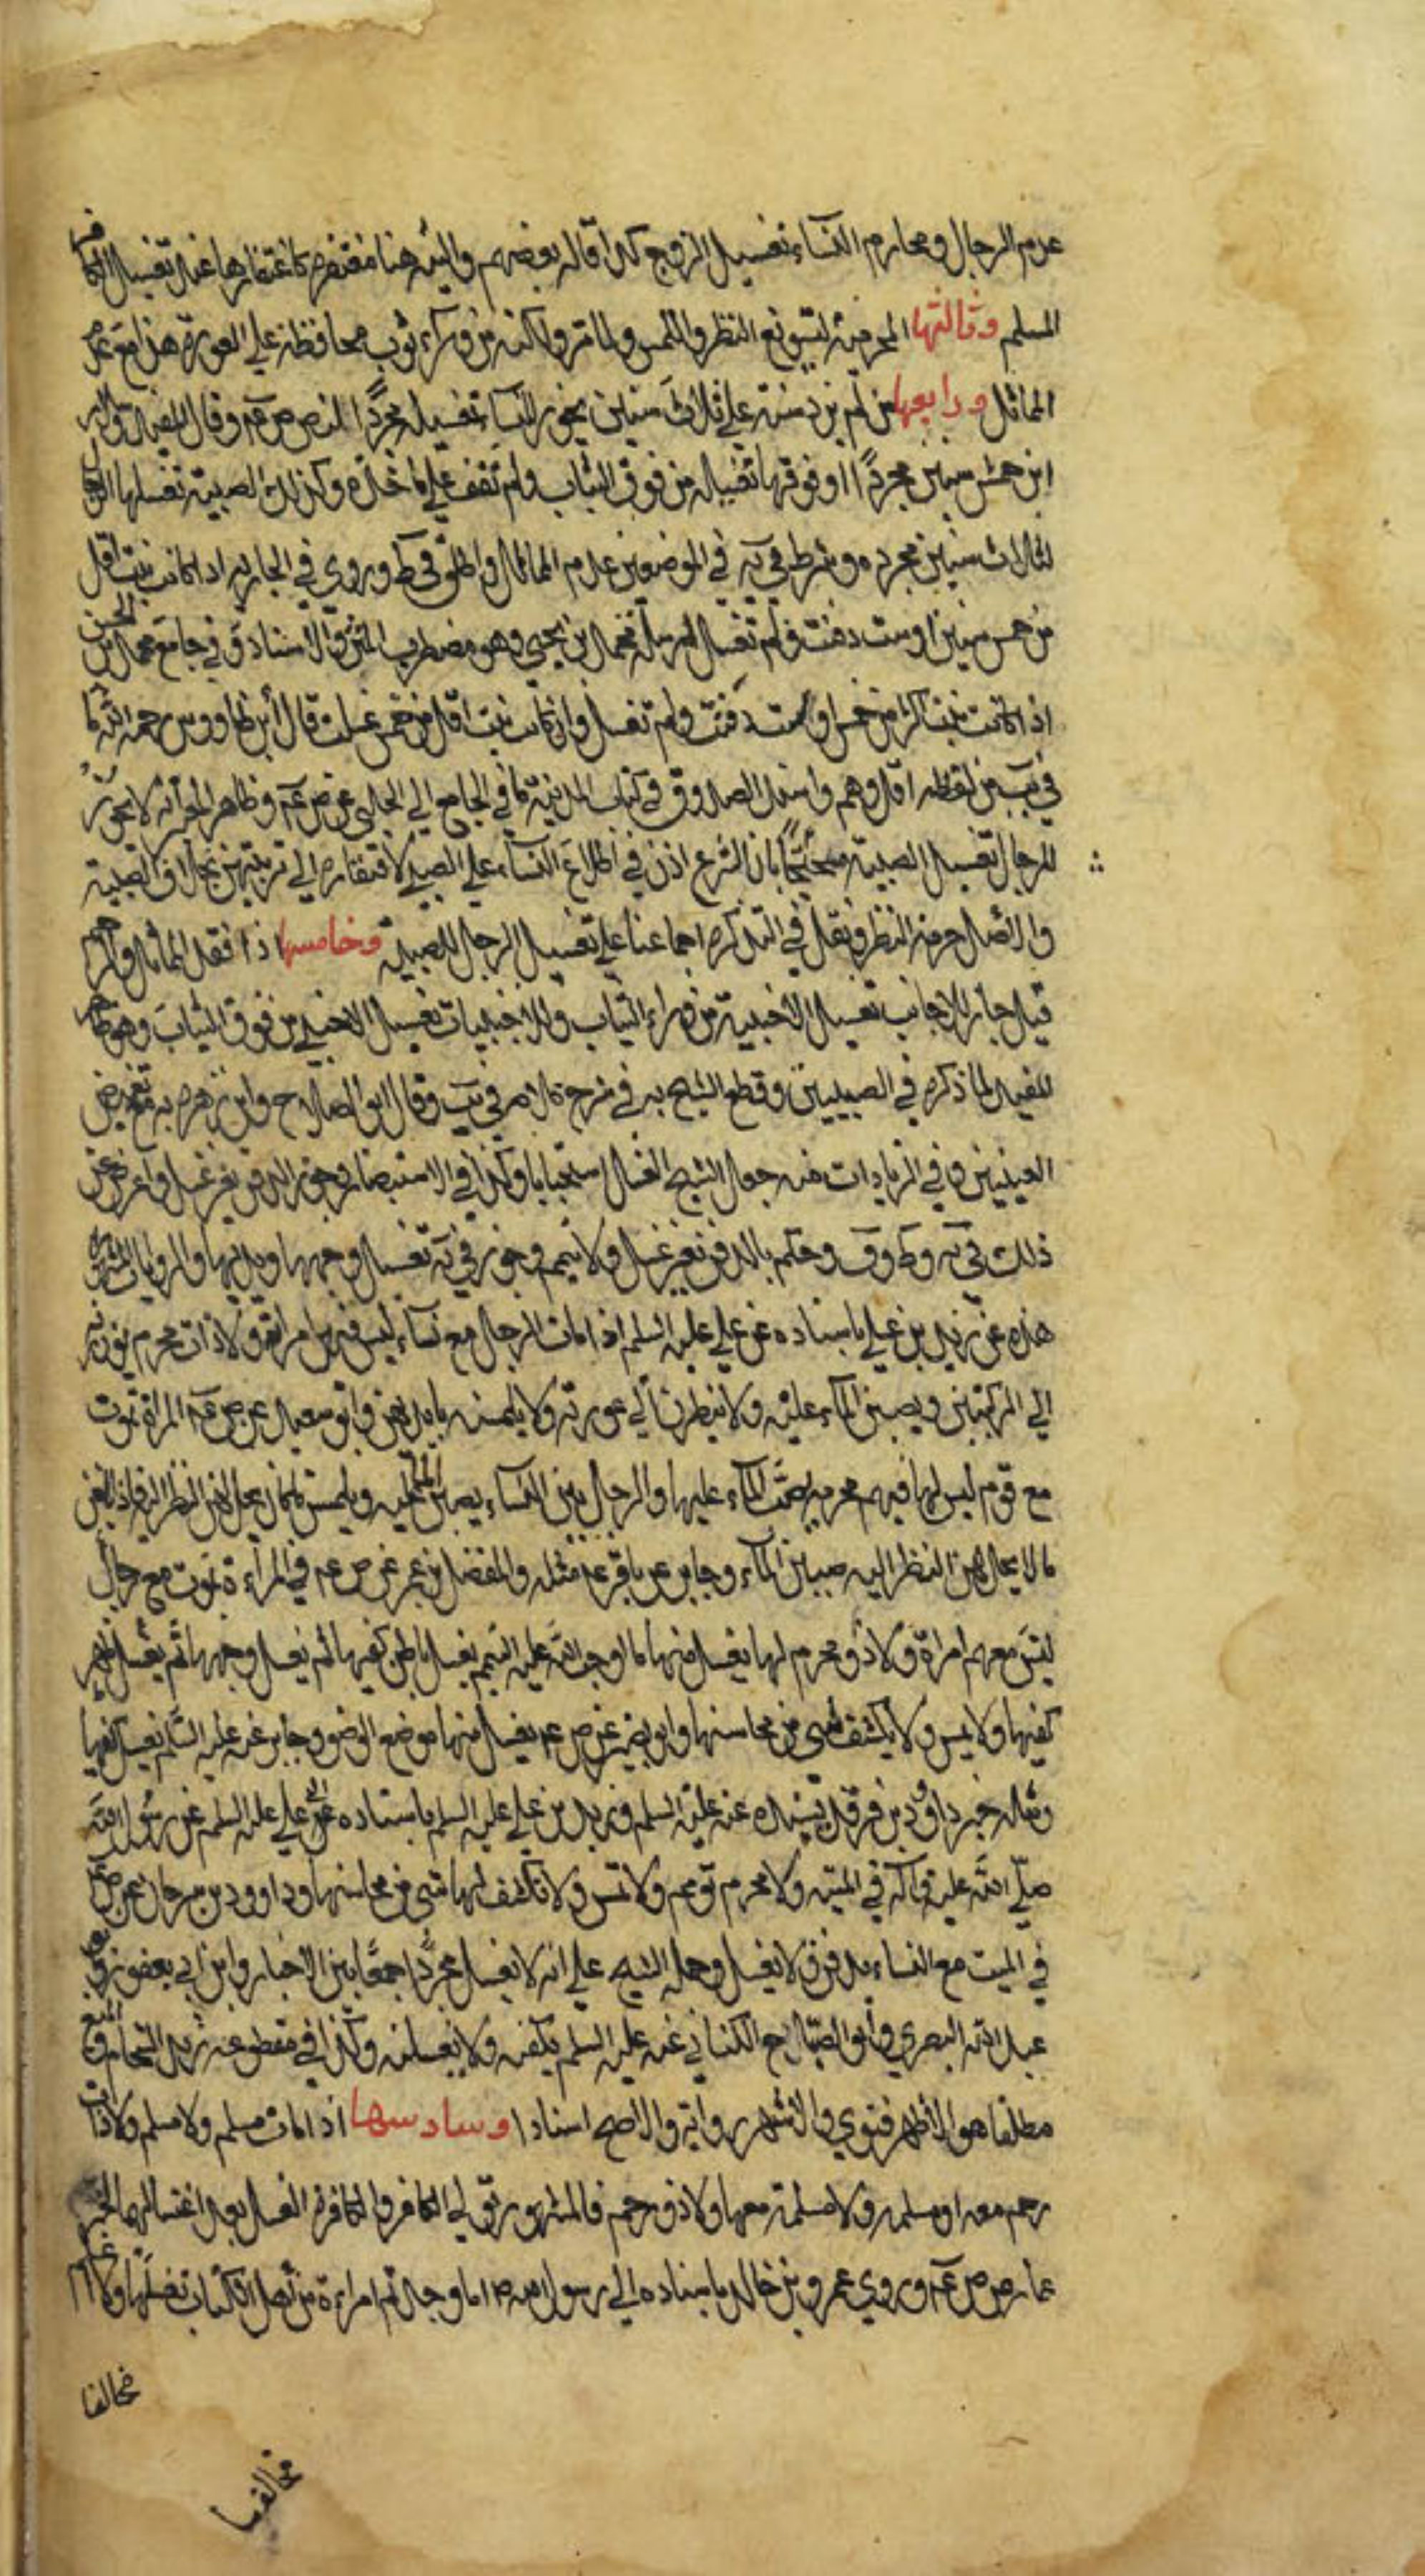 عدم الرجال ومحارم النساء تغسيل الزوج كذا قاله بعضهم والنية هنا مغتفرة كاغتفارها عند تغسيل الكافر
المسلم وثالثها المحرمية لتسويغ النظر واللمس ولكنه من وراء ثوب محافظة على العورة هذا مع عدم
المماثل ورابعها من لم يزد سنه على ثلاث سنين يجوز للنساء تغسيله مجردا لنص ص عم وقال المفيد وسلار
ابن خمس سنين مجردا او فوقها تغسيله من فوق الثياب ولم نقف على ماخذه وكذلك الصبية تغسلها الرجال
لثلاث سنين مجرده وشرط في يه في الموضعين عدم المماثل واطلق في ط وروي في الجارية اذا كانت بنت اقل
من خمس سنين او ست دفنت ولم تغسل ارسله محمد بن يحيى وهو مضطرب المتن والاسناد وفي جامع محمد بن الحسن
اذا كانت بنت اكثر من خمس او ست دفنت ولم تغسل وان كانت بنت اقل من خمس غسلت قال ابن طاووس رحمه الله ما
في يب من لفظه اقل وهم واسند الصدوق في كتاب المدينة ما في الجامع الى الحلبي عن ص عم وظاهر المعتبر انه لا يجوز
للرجال تغسيل الصبية محتجا بان الشرع اذن في اطلاع النساء على الصبي لافتقاره الى تربيتهن بخلاف الصبية
والاصل حرمة النظر ونقل في التذكرة اجماعنا على تغسيل الرجل للصبية وخامسها اذا فقد المماثل والرحم
قيل جاز للاجانب تغسيل الاجنبية من وراء الثياب وللاجنبيات تغسيل الاجنبي من فوق الثياب وهو ظاهر
المفيد لما ذكره في الصبيين وقطع الشيخ به في شرح كلامه في يب وقال ابو الصلاح وابن زهره به مع تغميض
العينين وفي الزيادات منه جعل الشيخ الغسل استحبابا وكذا في الاستبصار وجوز الدفن بغير غسل واعرض عن
ذلك في يه وط وف وحكم بالدفن بغير غسل ولا تيمم وجوز في يه تغسيل وجهها ويديها والروايات المشهورة
هذه عن زيد بن علي باسناده عن علي عليه السلم اذا مات الرجل مع نساء ليس فيهن امراته ولا ذات محرم يوزرنه
الى الركبتين ويصببن الماء عليه ولا ينظرن الى عورته ولا يلمسنه بايديهن وابو سعيد عن ص عم المراة تموت
مع قوم ليس لها فيهم محرم يصب الماء عليها والرجل بين النساء يصببن الماء عليه ويلمسن ما كان يحل لهن النظر اليه فاذا بلغن
ما لا يحل لهن النظر اليه صببن الماء وجابر عن باقر عم مثله والمفضل بن عمر عن ص عم في المراءة تموت مع رجال
ليس معهم امراة ولا ذو محرم لها يغسل منها ما اوجب الله عليه التيمم يغسل باطن كفيها ثم يغسل وجهها ثم يغسل ظهر
كفيها ولا يمس ولا يكشف شي من محاسنها وابو بصير عن ص عم يغسل منها موضع الوضو وجابر عنه عليه السلم يغسل كفيها
ومثله خبر داود بن فرقد يسنده عنه عليه السلم وزيد بن علي عليه السلم باسناده الى علي عليه السلم عن رسول الله
صلى الله عليه واله في الميتة ولا محرم تؤمم ولا تمس ولا تكشف لها شي من محاسنها وداوود بن سرحان عن ص عم
في الميت مع النساء يدفن ولا يغسل وحمله الشيخ على انه لا يغسل مجردا جمعا بين الاخبار وابن ابي يعفور وعبد الرحمن بن ابي
عبد الله البصري وابو الصباح الكناني عنه عليه السلم يكفنه ولا يغسلنه وكذا في مقطوعه زيد الشحام والمنع
مطلقا هو الاظهر فتوي والاشهر رواية والاصح اسنادا وسادسها اذا مات مسلم ولا مسلم ولا ذات
رحم معه او مسلمه ولا مسلمة معها ولا ذو رحم فالمشهور تولي الكافر والكافرة الغسل بعد اغتسالهما لخبر
عمار عن ص عم وروي عمرو بن خالد باسناده الى رسول الله ص اما وجدتم امراءة من اهل الكتاب تغسلها ولا اعلم
مخالفا
مخالفا